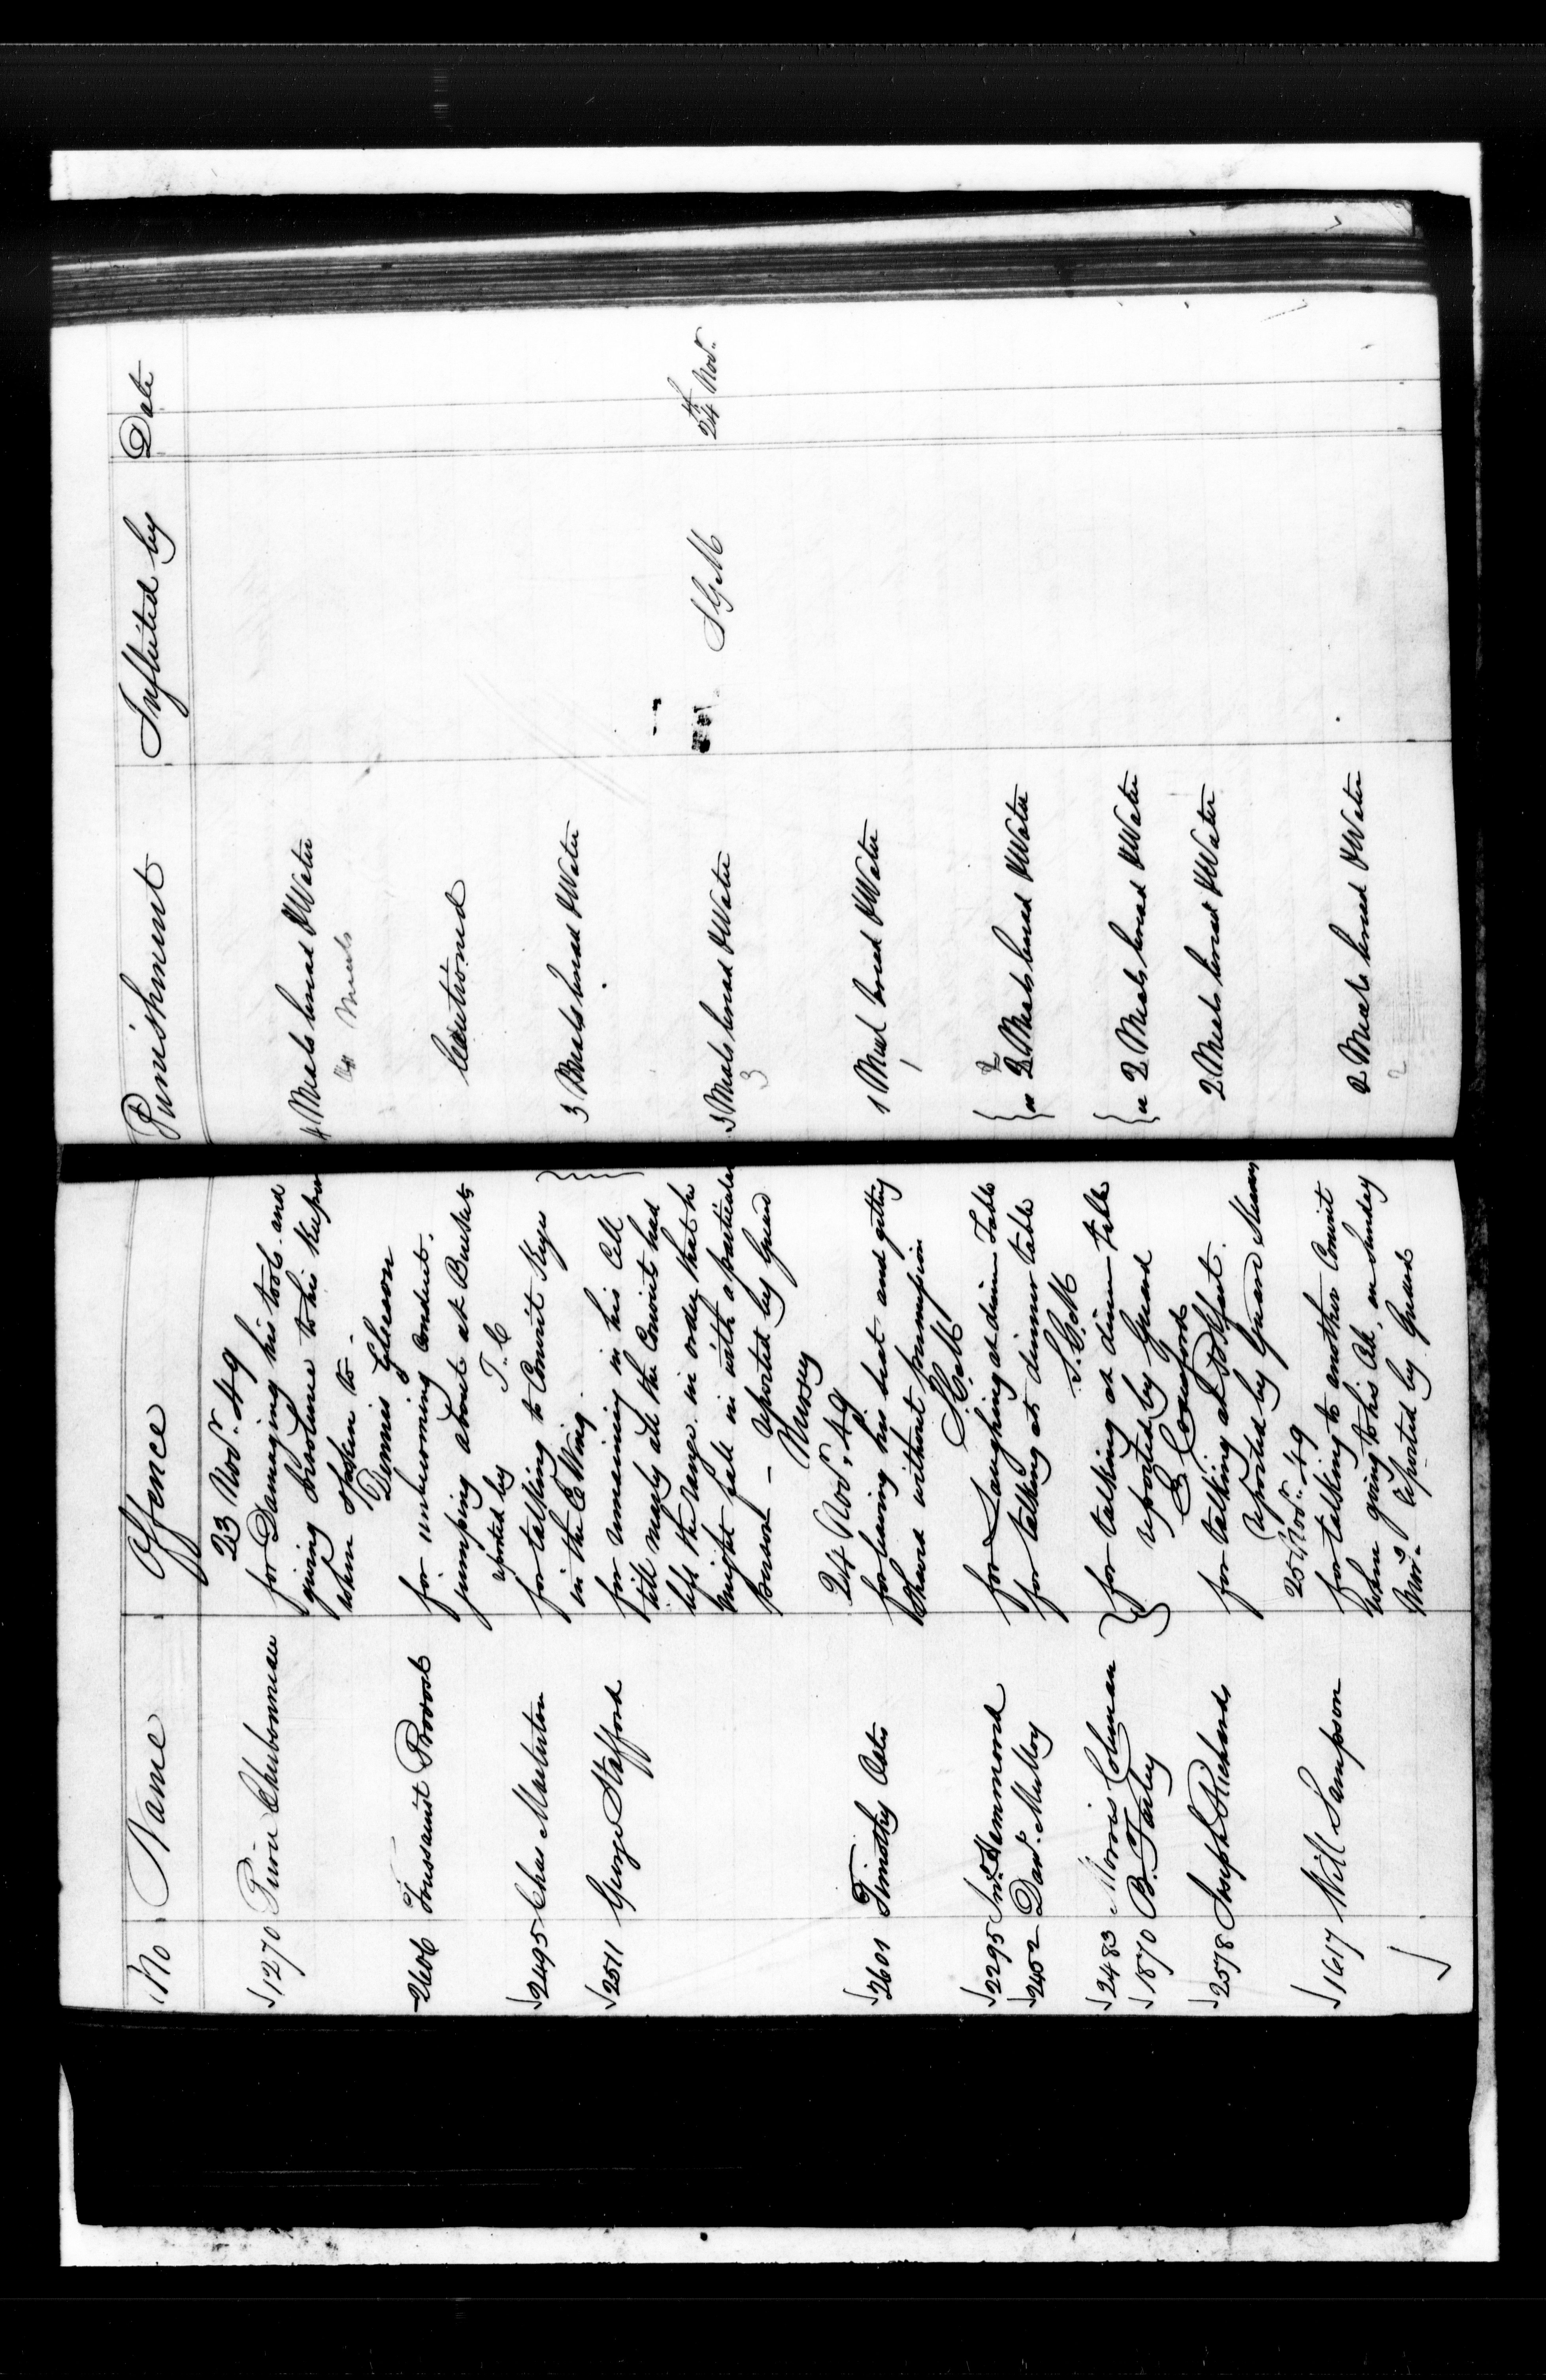 No Name Offence Punishment Inflicted by Date
23 Novr. 49
1270 for Damaging his tools and
giving insolence to his keeper 4 Meals bread & Water
when spoken to 4 Meals
Dennis Gleeson
2606 Toussaint Provost for unbecoming conduct. Cautioned
jumping about at Buckets
reported by T. C
2495 Chas Masterton for talking to Convict Keys 3 Meals bread & Water
in the E Wing.
2511 George Stafford for remaining in his Cell
till nearly all the Convicts had
left the range in order that he 24th Novr.
might fall in with a particular 3 Meals bread & Water SGM
person — reported by Guard 3
24 Novr. 49
2601 Timothy for leaving his seat and getting 1 Meal bread & Water
Shears without permission 1
2295 Jno. Hammond for Laughing at dinner Table
2452 Danl. Mulloy for talking at dinner table 2 Meals bread & Water
2483 Morris Coleman for talking at dinner table
1870 B. Farley reported by Guard 2 Meals bread & Water
B Crawford
2578 Joseph Richards for talking at 2 Meals bread & Water
reported by Guard
25 Novr. 49
1617 Will Sampson for talking to another Convict
when going to his Cell, on Sunday 2 Meals bread & Water
reported by Guard 2